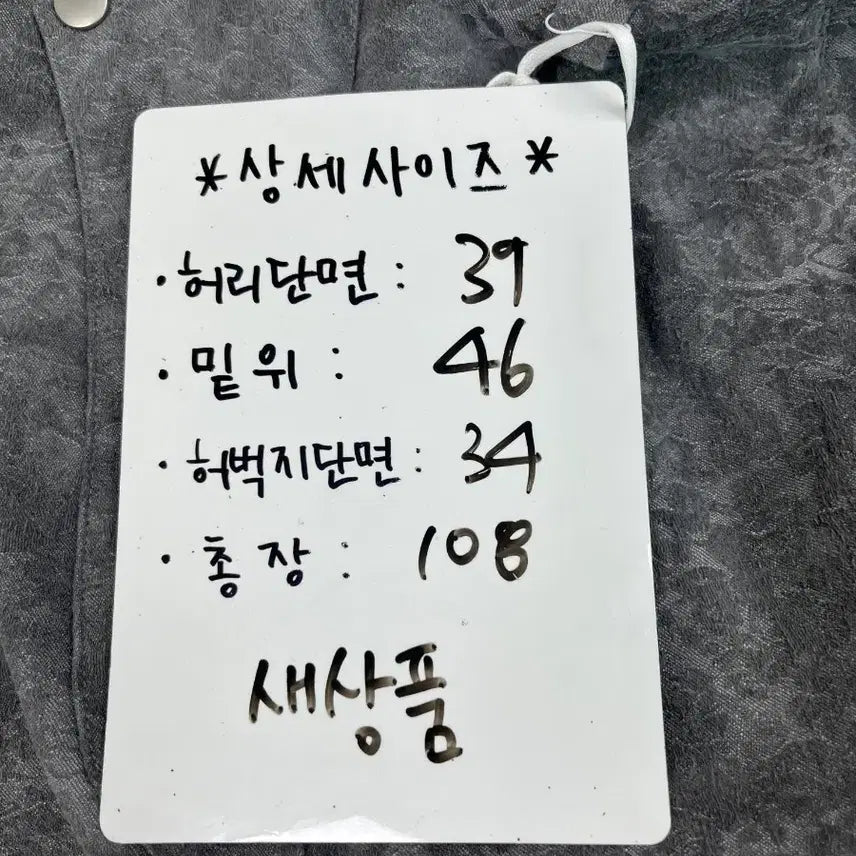 *상세사이즈*
· 허리단면 : 39
· 밑위 : 46
· 허벅지단면 : 34
· 총장 : 108
새상품